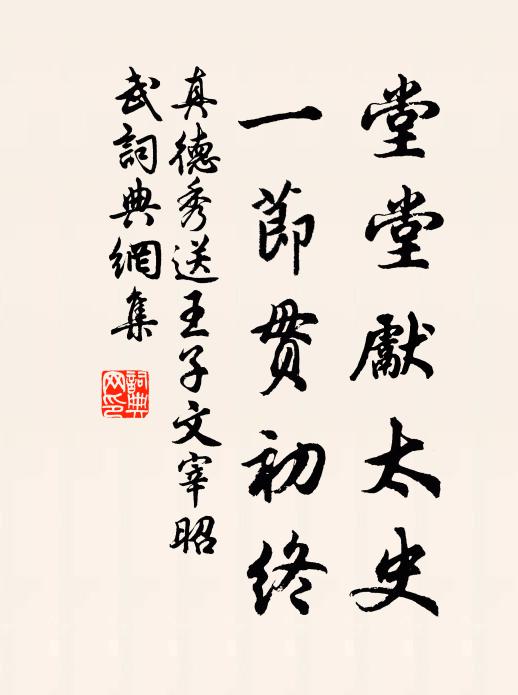 堂堂獻太史
一節貫初終
真德秀送王子文宰昭
武詞典網集
詞典网印